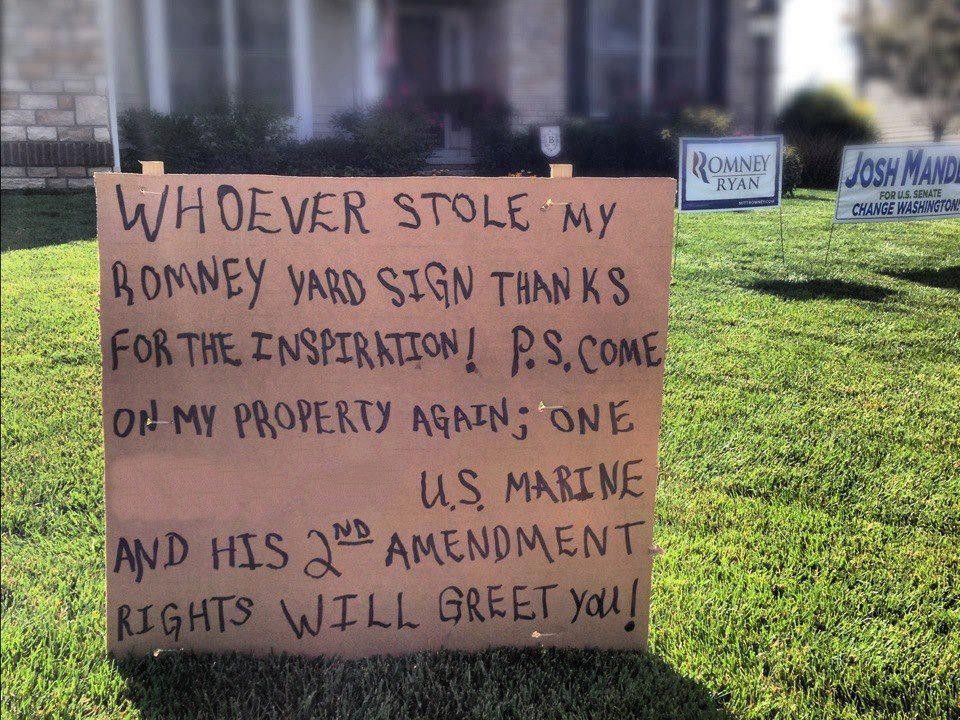 WHOEVER STOLE MY
ROMNEY YARD SIGN THANKS
FOR THE INSPIRATION! P.S. COME
ON MY PROPERTY AGAIN; ONE
U.S. MARINE
AND HIS 2ND AMENDMENT
RIGHTS WILL GREET YOU!
ROMNEY
RYAN
MITTROMNEY.COM
JOSH MANDE
FOR U.S. SENATE
CHANGE WASHINGTON